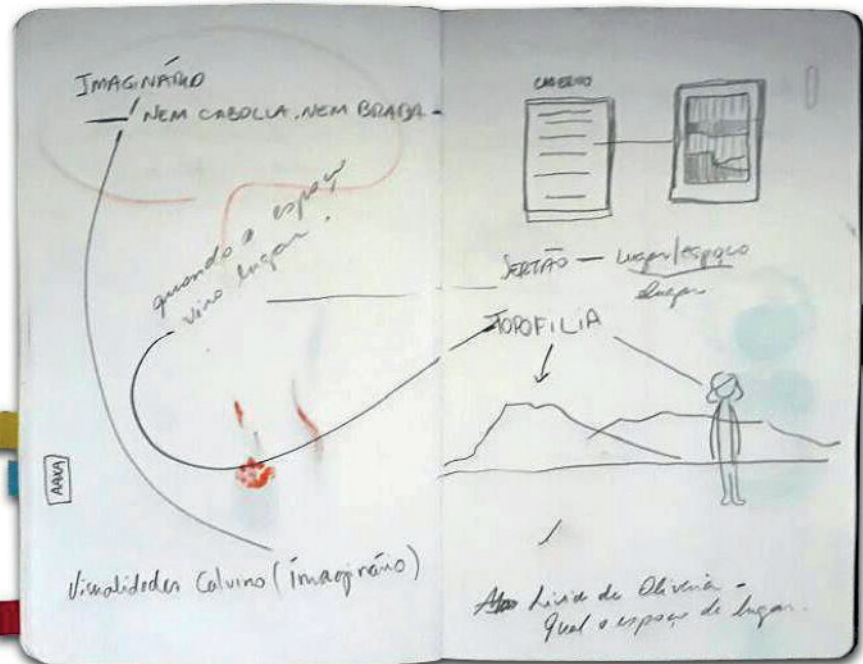 IMAGINÁRIO
NEM CABOLLA, NEM BRABA -
quando o espaço
vira lugar.
AAXA
Visualidades Calvino (imaginário)
CADERNO
SERTÃO — Lugar/espaço
lugar
TOPOFILIA
Livia de Oliveira -
Qual o espaço de lugar.